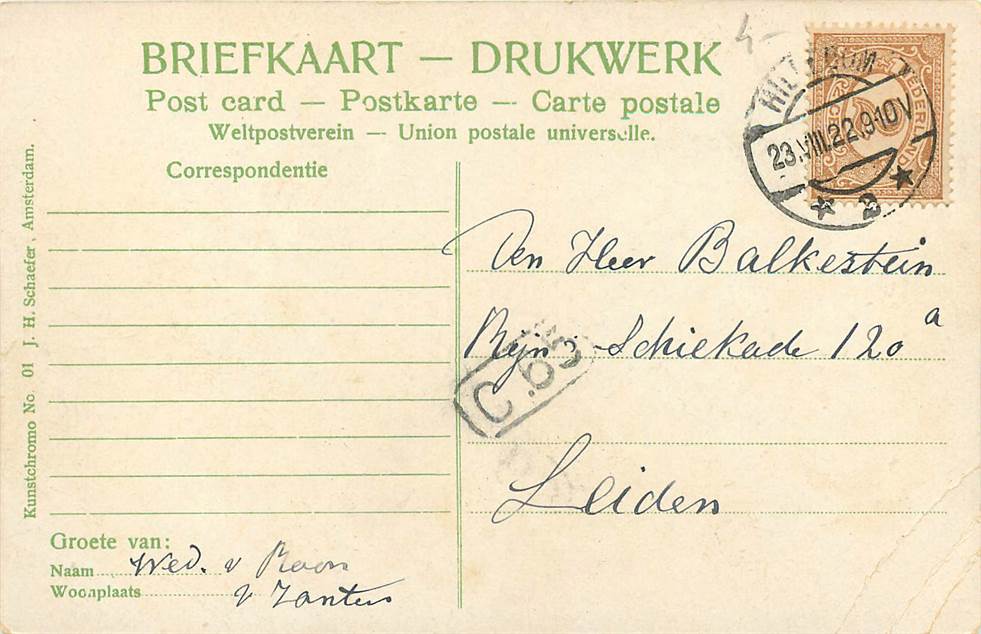 BRIEFKAART — DRUKWERK
Post card — Postkarte — Carte postale
Weltpostverein — Union postale universelle.
Correspondentie
HILVERSUM
23.VIII.22.9-10V
2
NEDERLAND
4-
Den Heer Balkestein
Rijn-Schiekade 120a
Leiden
C. 69.
Groete van:
Naam Wed. v Roon
Woonplaats v Zanten
Kunstchromo No. 01 J. H. Schaefer, Amsterdam.